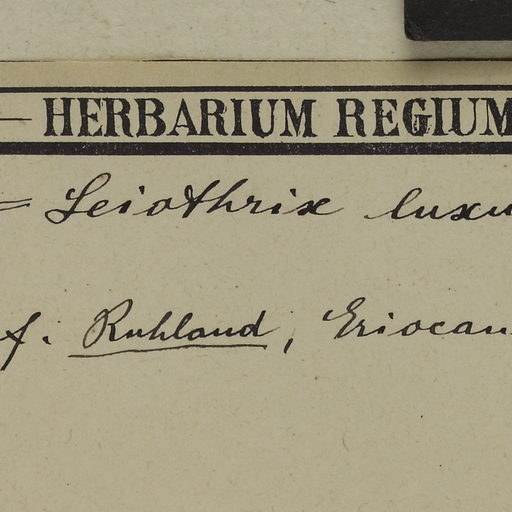 — HERBARIUM REGIUM
= Leiothrix luxu
f. Ruhland, Eriocau